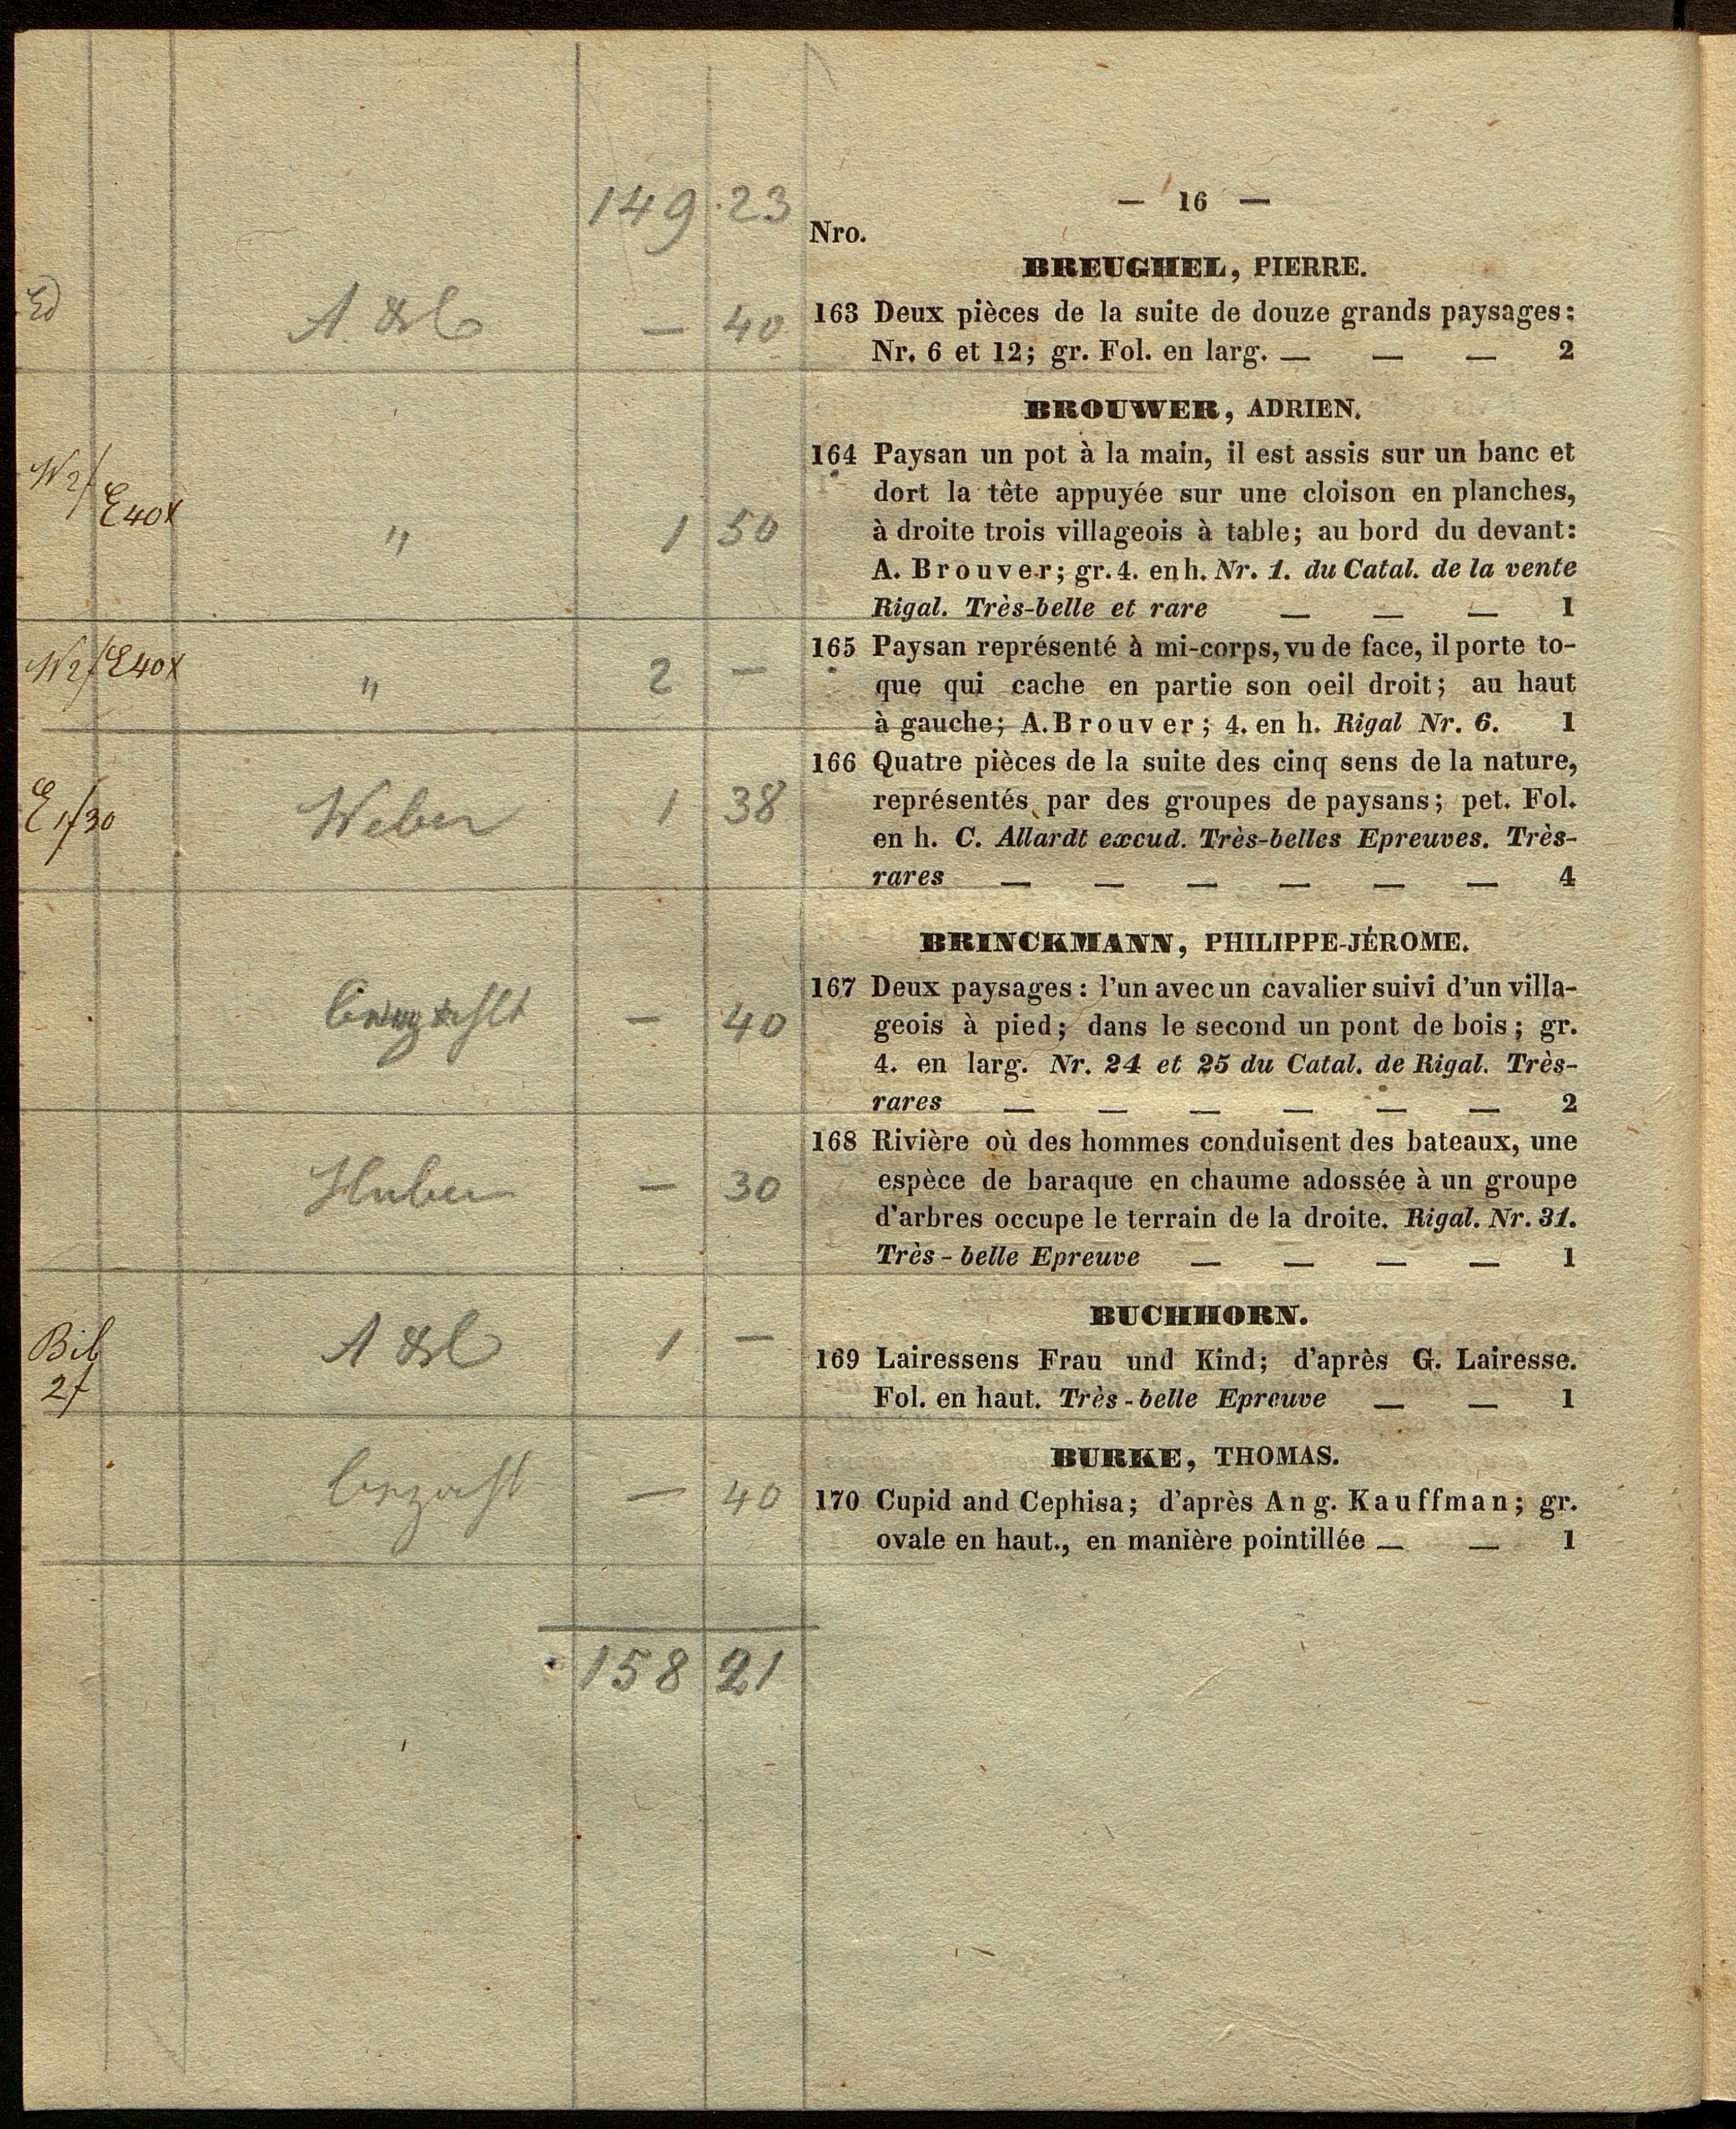 149 23
— 16 —
Nro.
BREUGHEL, PIERRE.
— 40
163 Deux pièces de la suite de douze grands paysages:
Nr. 6 et 12; gr. Fol. en larg. — — — 2
BROUWER, ADRIEN.
E40x
" 1 50
164 Paysan un pot à la main, il est assis sur un banc et
dort la tête appuyée sur une cloison en planches,
à droite trois villageois à table; au bord du devant:
A. Brouver; gr. 4. en h. Nr. 1. du Catal. de la vente
Rigal. Très-belle et rare — — — 1
E40x
" 2 —
165 Paysan représenté à mi-corps, vu de face, il porte to-
que qui cache en partie son oeil droit; au haut
à gauche; A. Brouver; 4. en h. Rigal Nr. 6. 1
E 1/30
Weber 1 38
166 Quatre pièces de la suite des cinq sens de la nature,
représentés par des groupes de paysans; pet. Fol.
en h. C. Allardt excud. Très-belles Epreuves. Très-
rares — — — — — — 4
BRINCKMANN, PHILIPPE-JÉROME.
— 40
167 Deux paysages: l'un avec un cavalier suivi d'un villa-
geois à pied; dans le second un pont de bois; gr.
4. en larg. Nr. 24 et 25 du Catal. de Rigal. Très-
rares — — — — — — 2
Huber — 30
168 Rivière où des hommes conduisent des bateaux, une
espèce de baraque en chaume adossée à un groupe
d'arbres occupe le terrain de la droite. Rigal. Nr. 31.
Très-belle Epreuve — — — — 1
BUCHHORN.
Bib
1 —
169 Lairessens Frau und Kind; d'après G. Lairesse.
Fol. en haut. Très-belle Epreuve — — 1
BURKE, THOMAS.
— 40
170 Cupid and Cephisa; d'après Ang. Kauffman; gr.
ovale en haut., en manière pointillée — — 1
158 21